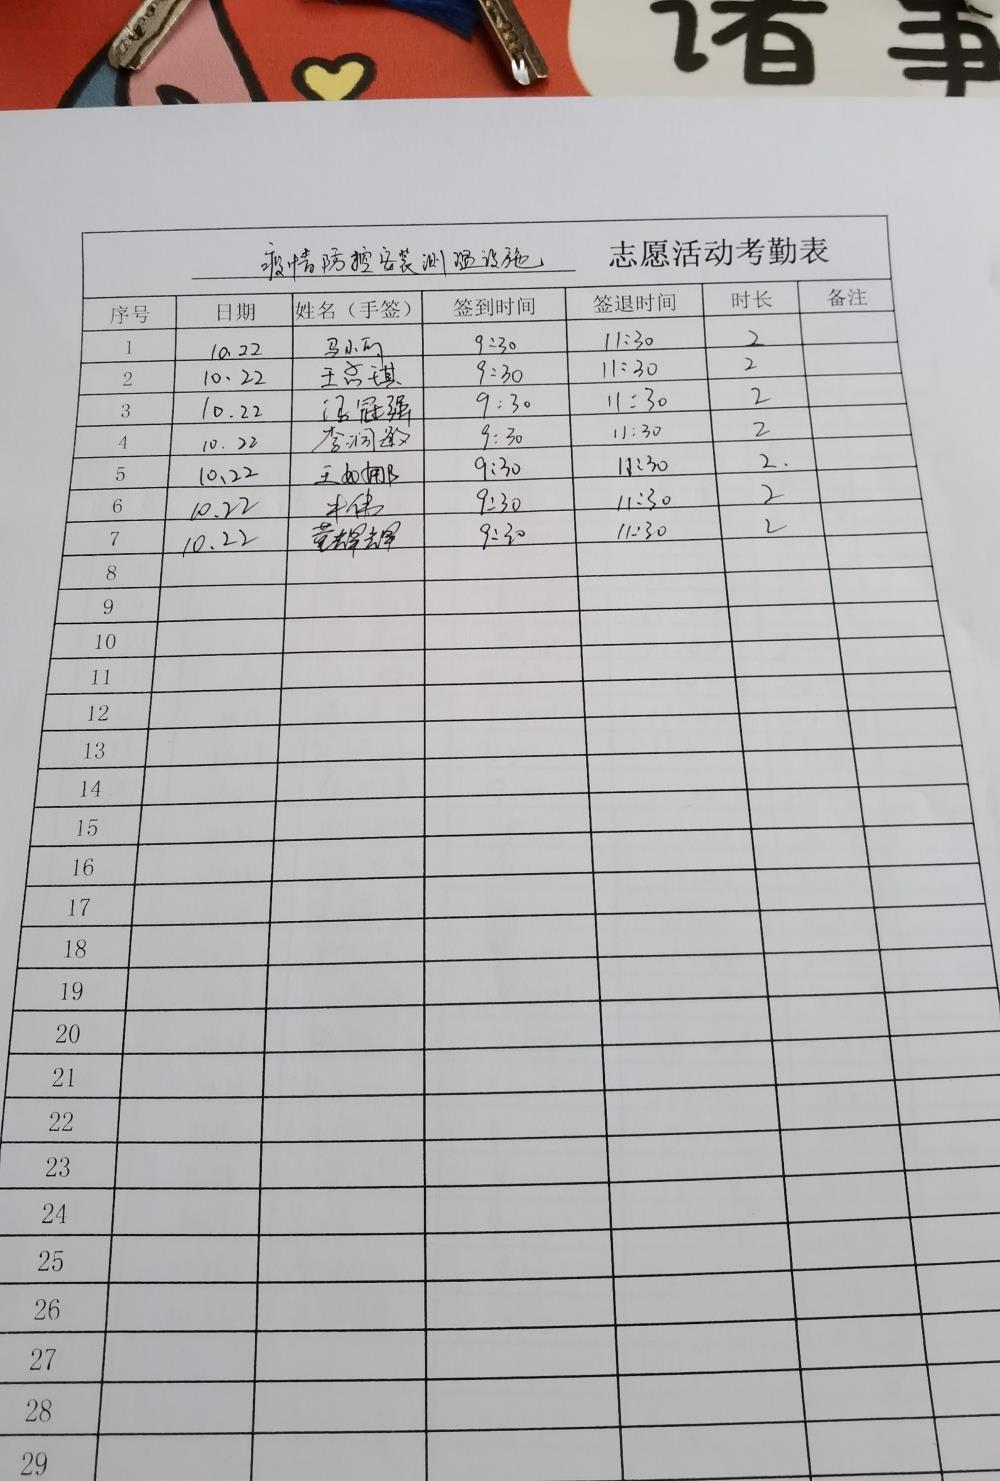 诸事
疫情防控安装测温设施 志愿活动考勤表
序号 日期 姓名（手签） 签到时间 签退时间 时长 备注
1 10.22 马小可 9:30 11:30 2
2 10、22 王 琪 9:30 11:30 2
3 10.22 冠强 9:30 11:30 2
4 10.22 李润敏 9:30 11:30 2
5 10、22 王如娜 9:30 11:30 2.
6 10.22 牛伟 9:30 11:30 2
7 10.22 董 9:30 11:30 2
8
9
10
11
12
13
14
15
16
17
18
19
20
21
22
23
24
25
26
27
28
29